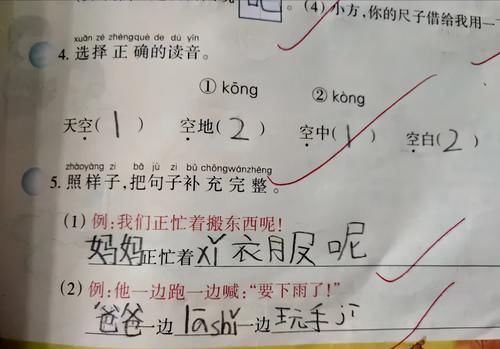 (4) 小方,你的尺子借给我用一
xuǎn zé zhèngquè de dú yīn
4. 选择正确的读音。
① kōng ② kòng
天空( 1 ) 空地( 2 ) 空中( 1 ) 空白( 2 )
zhàoyàng zi bǎ jù zi bǔ chōngwánzhěng
5. 照样子,把句子补充完整。
(1) 例:我们正忙着搬东西呢!
妈妈正忙着xǐ衣服呢
(2) 例:他一边跑一边喊:“要下雨了!”
爸爸一边lāshǐ一边玩手jī